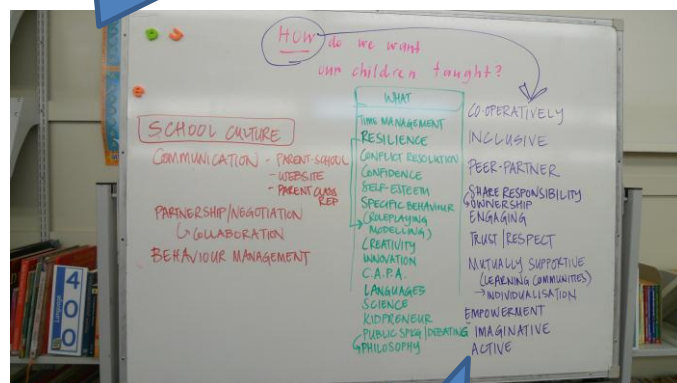 HOW do we want
our children taught?
SCHOOL CULTURE
COMMUNICATION - PARENT-SCHOOL
- WEBSITE
- PARENT CLASS
REP
PARTNERSHIP/NEGOTIATION
↳ COLLABORATION
BEHAVIOUR MANAGEMENT
WHAT
TIME MANAGEMENT
RESILIENCE
CONFLICT RESOLUTION
CONFIDENCE
SELF-ESTEEM
SPECIFIC BEHAVIOUR
(ROLEPLAYING
MODELLING)
CREATIVITY
INNOVATION
C.A.P.A.
LANGUAGES
SCIENCE
KIDPRENEUR
PUBLIC SPKG/DEBATING
PHILOSOPHY
CO-OPERATIVELY
INCLUSIVE
PEER-PARTNER
SHARE RESPONSIBILITY
OWNERSHIP
ENGAGING
TRUST/RESPECT
MUTUALLY SUPPORTIVE
(LEARNING COMMUNITIES)
→ INDIVIDUALISATION
EMPOWERMENT
IMAGINATIVE
ACTIVE
400